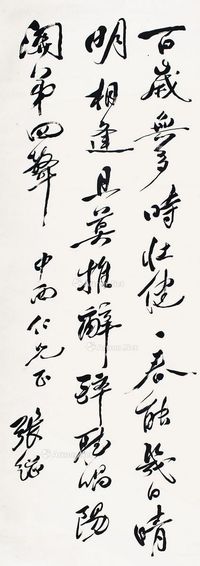 百歲無多時壯健一春能幾日晴
明相逢且莫推辭醉聽唱陽
關第四聲
中南仁兄正
張繼